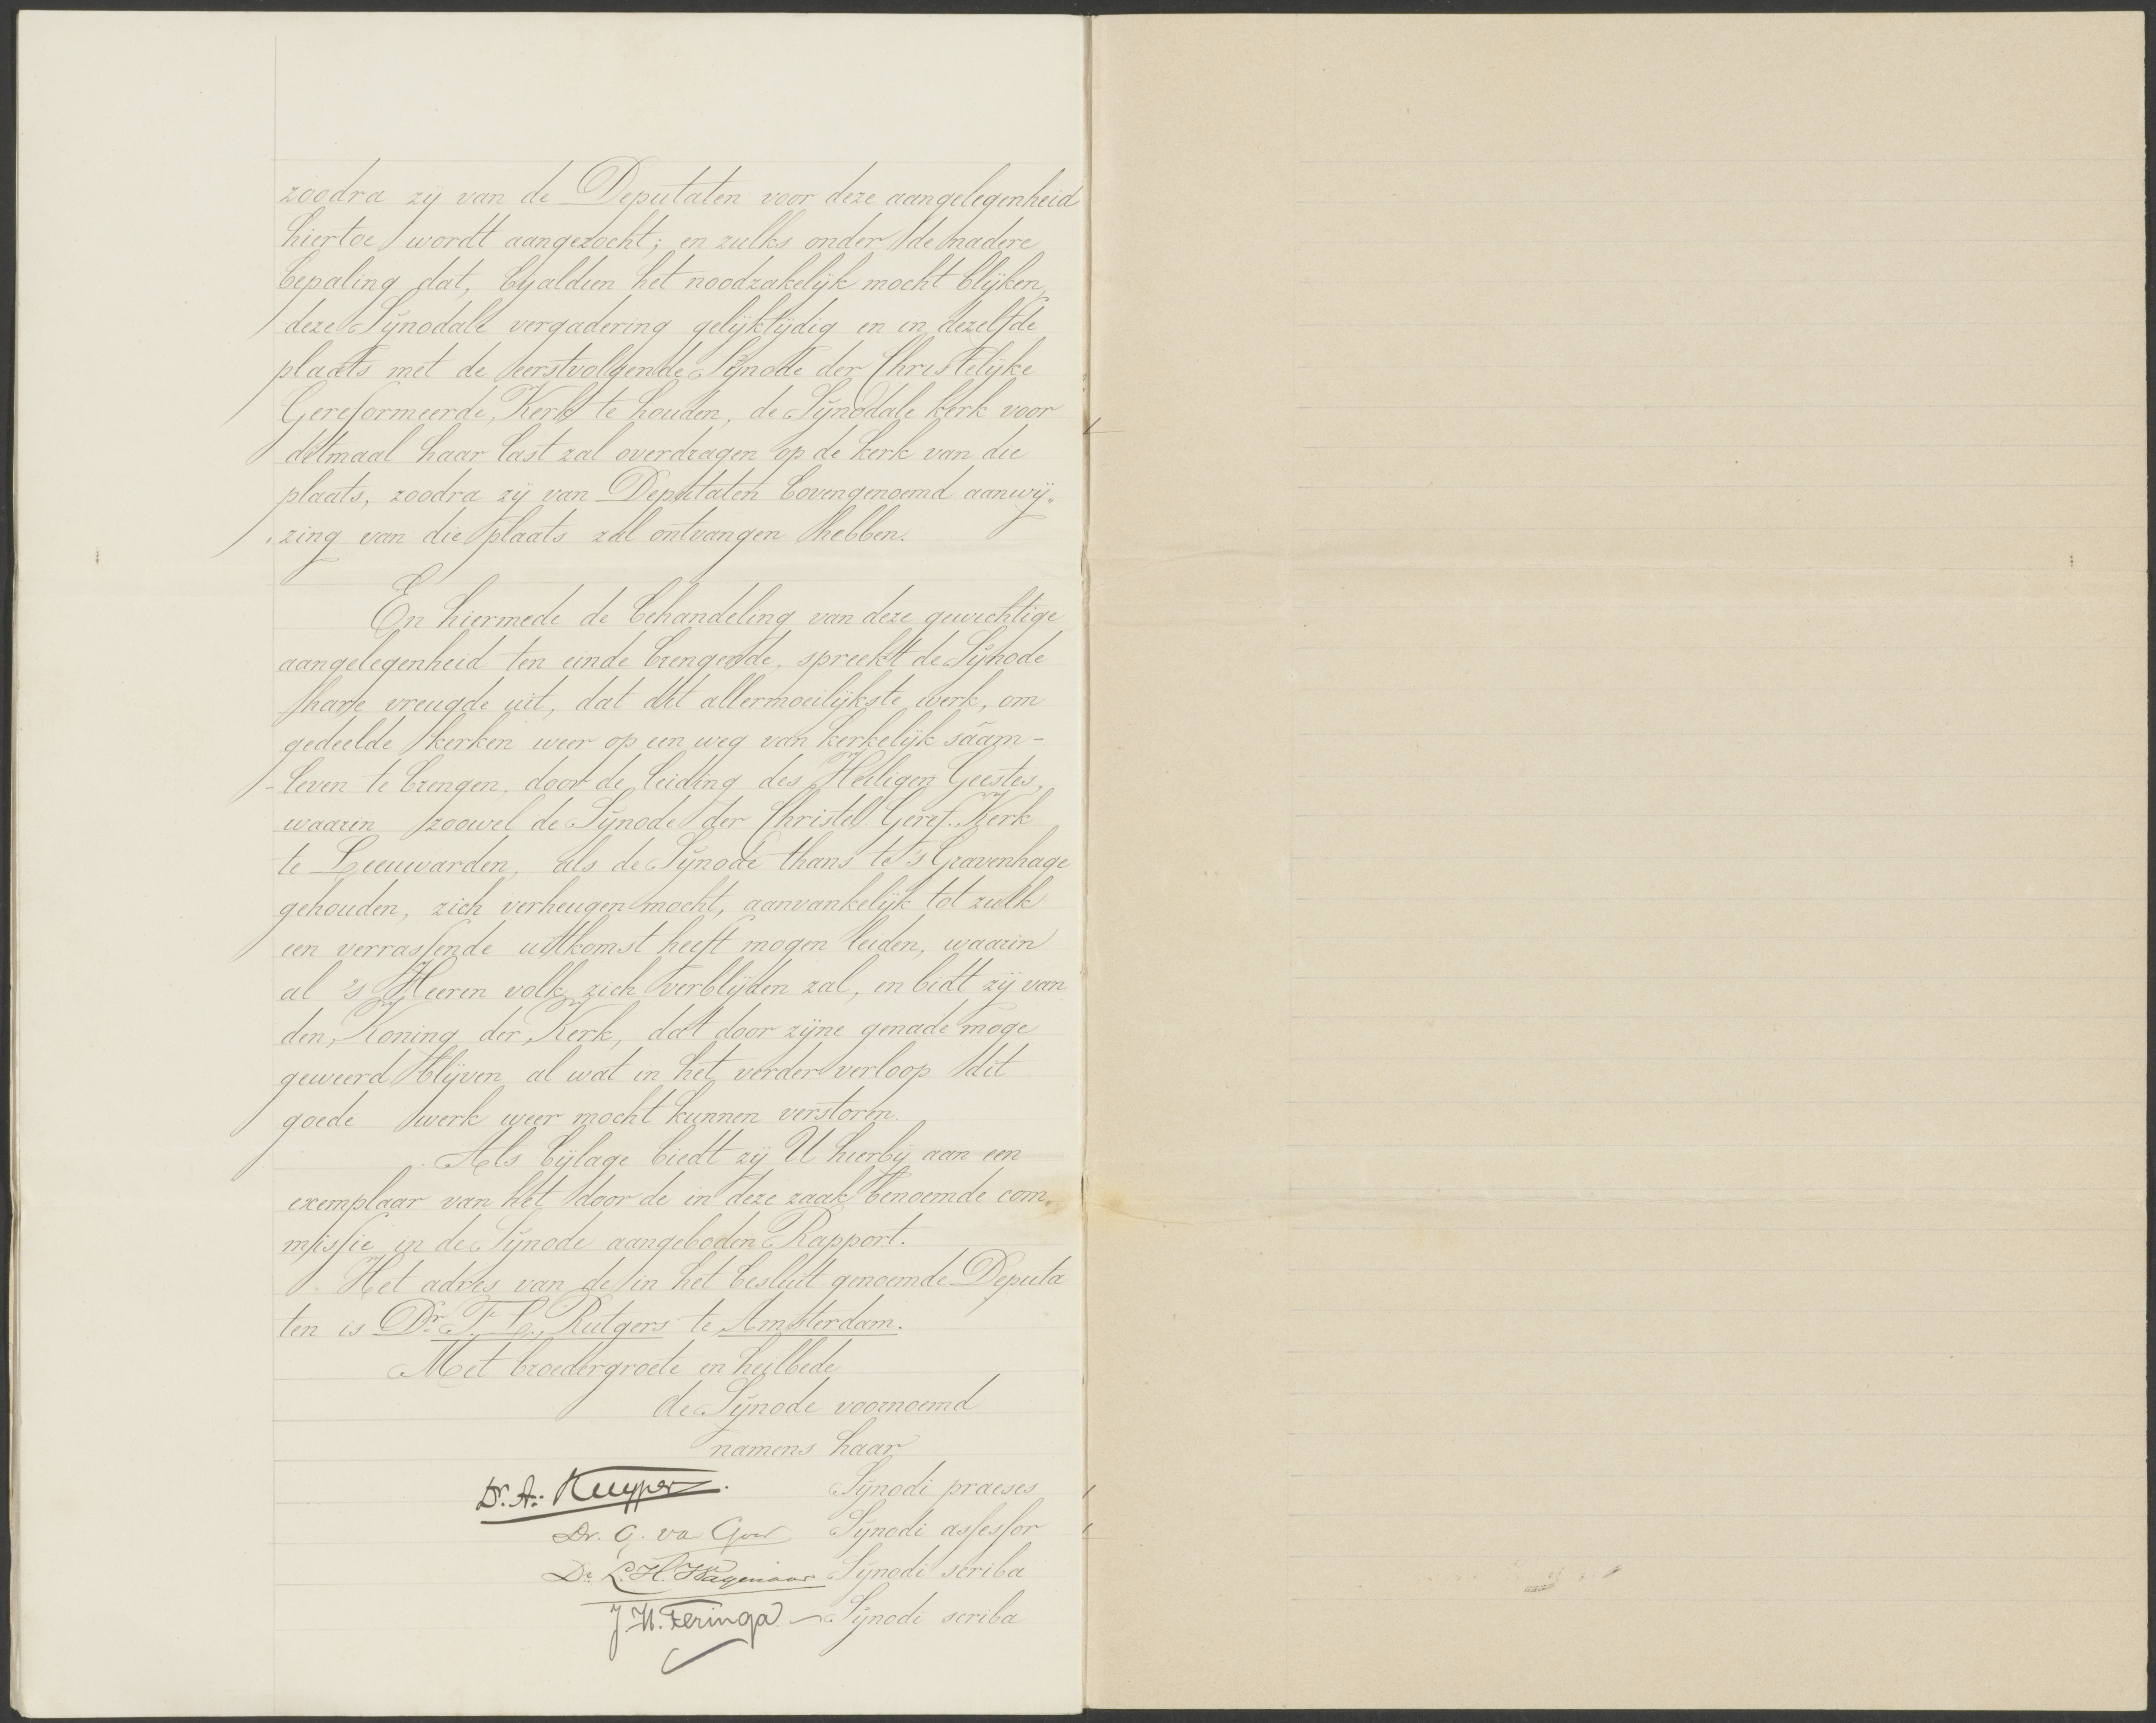 zoodra zij van de Deputaten voor deze aangelegenheid
hiertoe wordt aangezocht; en zulks onder de nadere
bepaling dat, bijaldien het noodzakelijk mocht blijken,
deze Synodale vergadering gelijktijdig en in dezelfde
plaats met de eerstvolgende Synode der Christelijke
Gereformeerde Kerk te houden, de Synodale kerk voor
ditmaal haar last zal overdragen op de kerk van die
plaats, zoodra zij van Deputaten bovengenoemd aanwij„
„zing van die plaats zal ontvangen hebben.
En hiermede de behandeling van deze gewichtige
aangelegenheid ten einde brengende, spreekt de Synode
hare vreugde uit, dat dit allermoeilijkste werk, om
gedeelde kerken weer op een weg van kerkelijk sáám-
-leven te brengen, door de leiding des Heiligen Geestes,
waarin zoowel de Synode der Christel. Geref. Kerk
te Leeuwarden, als de Synode thans te 's Gravenhage
gehouden, zich verheugen mocht, aanvankelijk tot zulk
een verrassende uitkomst heeft mogen leiden, waarin
al 's Heeren volk zich verblijden zal, en bidt zij van
den Koning der Kerk, dat door zijne genade moge
geweerd blijven al wat in het verder verloop dit
goede werk weer mocht kunnen verstoren.
Als bijlage biedt zij U hierbij aan een
exemplaar van het door de in deze zaak benoemde com„
missie in de Synode aangeboden Rapport.
Het adres van de in het besluit genoemde Deputa
ten is Dr. F. L. Rutgers te Amsterdam.
Met broedergroete en heilbede
de Synode voornoemd
namens haar
Dr. A. Kuyper. Synodi praeses
Dr. G. va Goor Synodi assessor
Dr L. H. Wagenaar Synodi scriba
J. H. Feringa — Synodi scriba